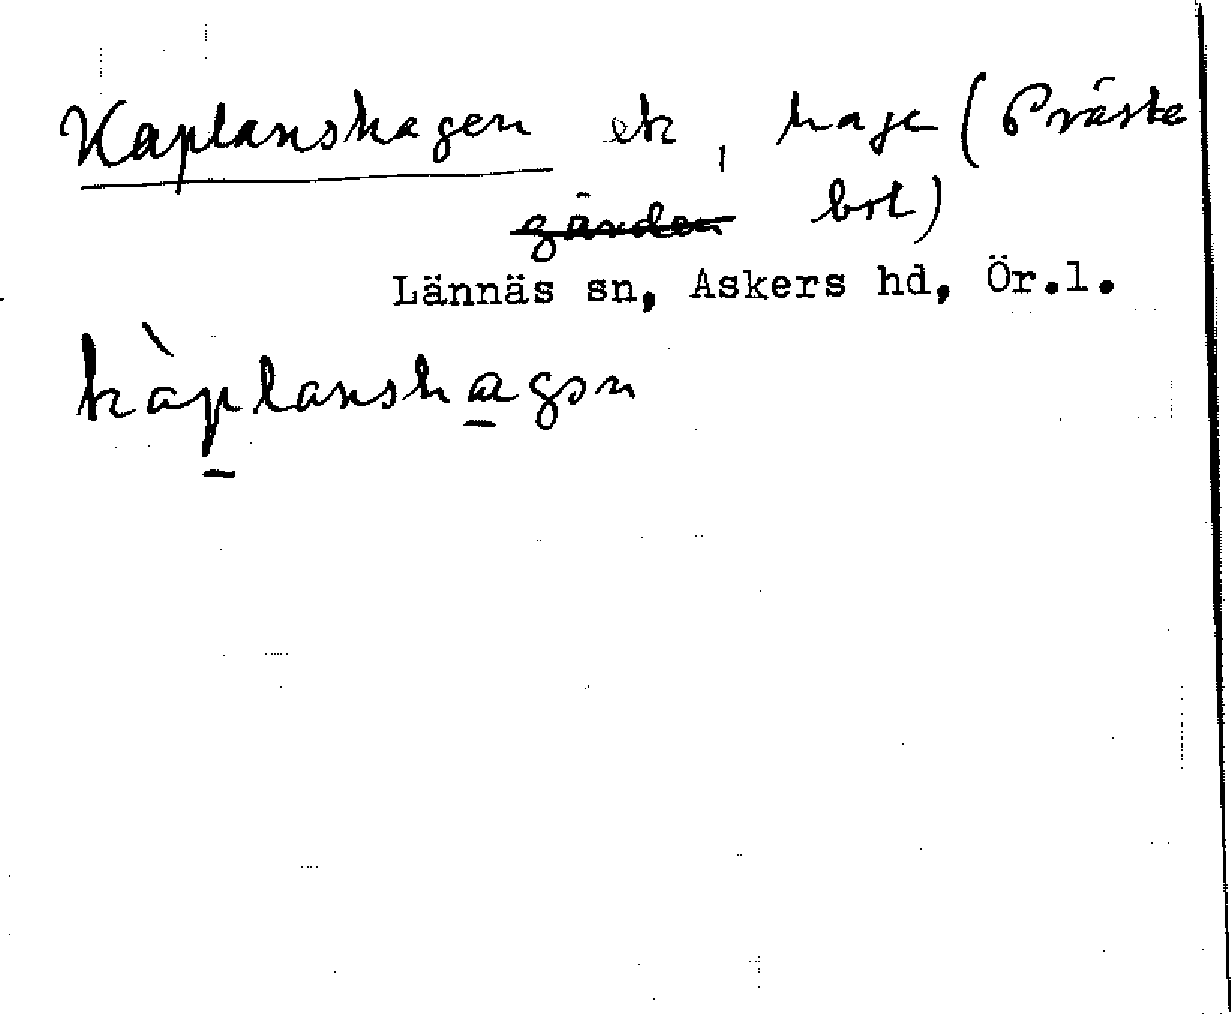 Kaplanshagen ek, hage (Präste
gärden bol)
Lännäs sn, Askers hd, Ör.l.
kàplanshagən